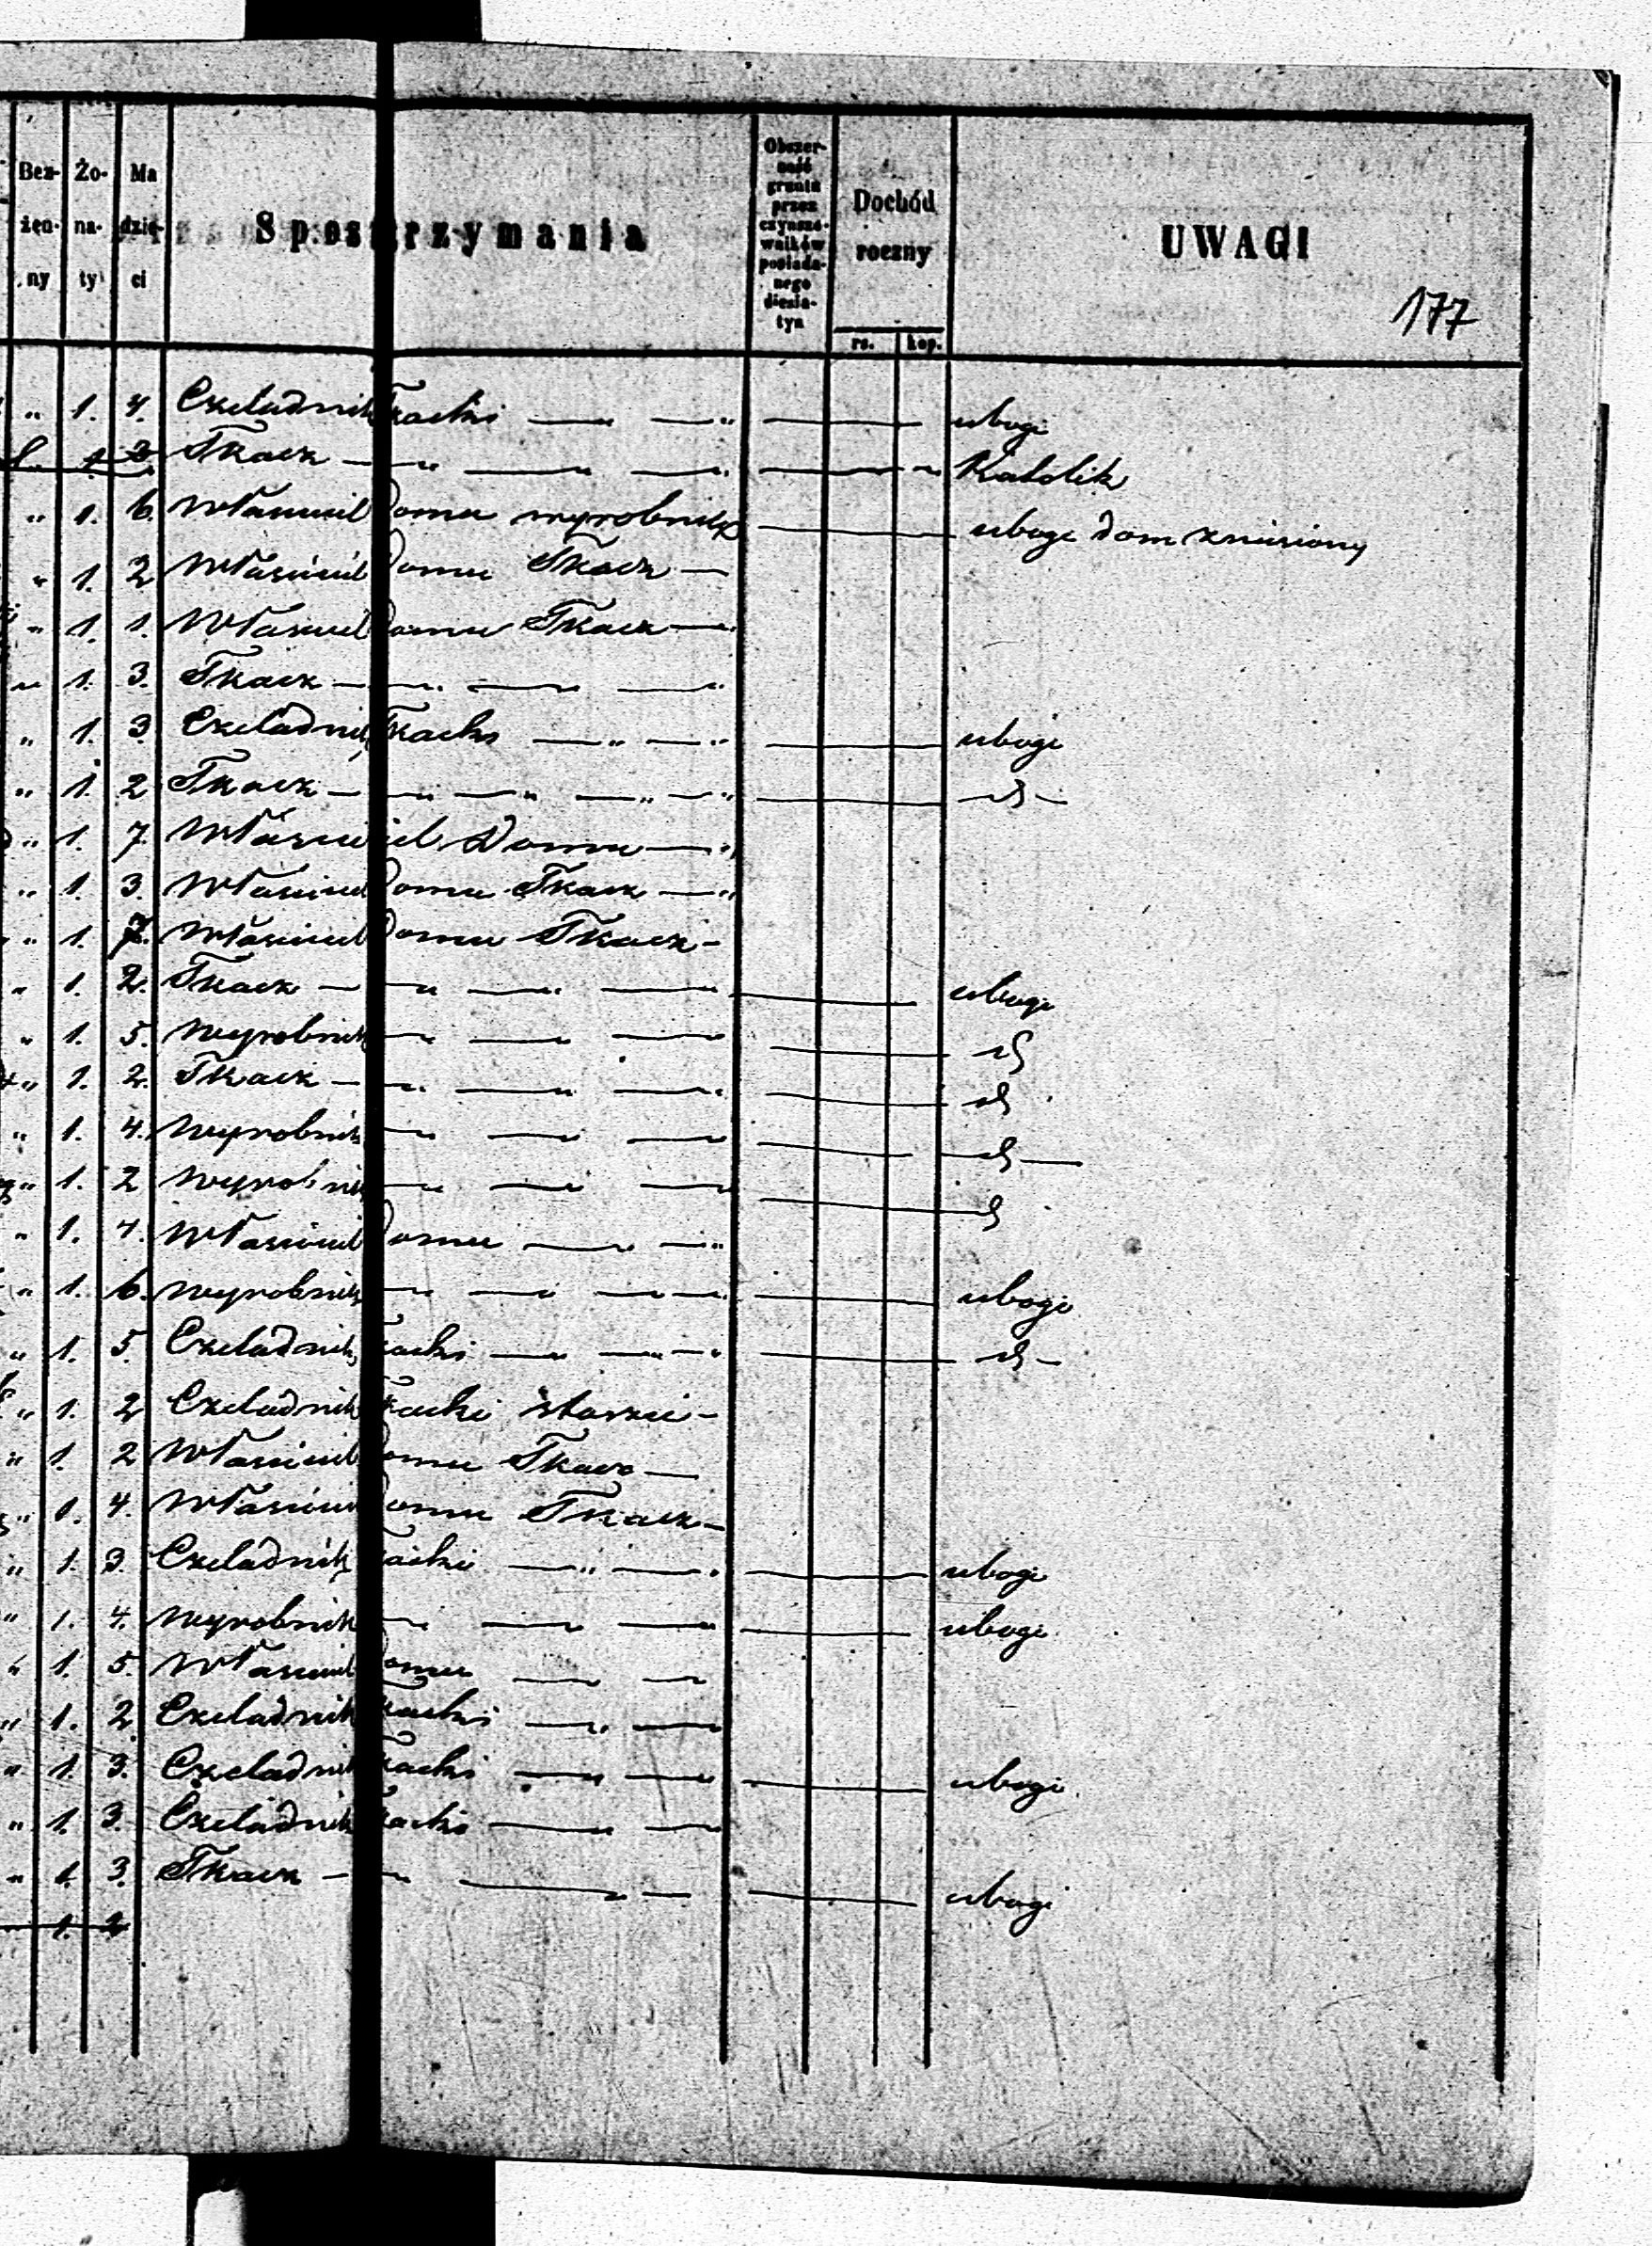 Bez-żen-ny Żo-na-ty Ma dzie-ci Spostrzymania Obszer-ność gruntu przez czynszo-wników posiada-nego diesia-tyn Dochód roczny rs. kop. UWAGI
177
„ 1. 4. Czeladnik Tkacki — „ — „ ubogi
1. 2 Tkacz — „ — „ — „ Katolik
„ 1. 6. Właściciel Domu wyrobnik ubogi dom zniesiony
„ 1. 2 Właściciel Domu Tkacz —
„ 1. 1. Właściciel Domu Tkacz —
„ 1. 3. Tkacz — „ — „ — „
„ 1. 3. Czeladnik Tkacki — „ — „ ubogi
„ 1. 2 Tkacz — „ — „ — „ — „ — d —
„ 1. 7. Właściciel Domu — „
„ 1. 3. Właściciel Domu Tkacz — „
„ 1. 7. Właściciel Domu Tkacz —
„ 1. 2. Tkacz — „ — „ — „ ubogi
„ 1. 5. Wyrobnik — „ — „ — „ d
„ 1. 2. Tkacz — „ — „ — „ d
„ 1. 4. Wyrobnik — „ — „ — „ — d —
„ 1. 2 Wyrobnik — „ — „ — „ d
„ 1. 4. Właściciel Domu — „ — „
„ 1. 6. Wyrobnik — „ — „ — „ ubogi
„ 1. 5. Czeladnik Tkacki — „ — „ — „ d —
„ 1. 2 Czeladnik Tkacki —
„ 1. 2 Właściciel Domu Tkacz —
„ 1. 4. Właściciel Domu Tkacz —
„ 1. 3. Czeladnik Tkacki — „ — „ ubogi
„ 1. 4. Wyrobnik — „ — „ — „ ubogi
„ 1. 5. Właściciel Domu — „ — „
„ 1. 2 Czeladnik Tkacki — „ — „
„ 1. 3. Czeladnik Tkacki — „ — „ ubogi
„ 1. 3. Czeladnik Tkacki — „ — „
„ 1. 3. Tkacz — „ — „ — ubogi
1. 2